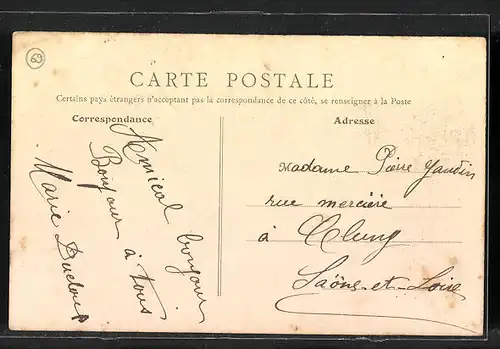 69
CARTE POSTALE
Certains pays étrangers n'acceptant pas la correspondance de ce côté, se renseigner à la Poste
Correspondance
Amical bonjour
Bonjour à tous
Marie
Adresse
Madame Pierre
rue mercière
à Cluny
Saône-et-Loire